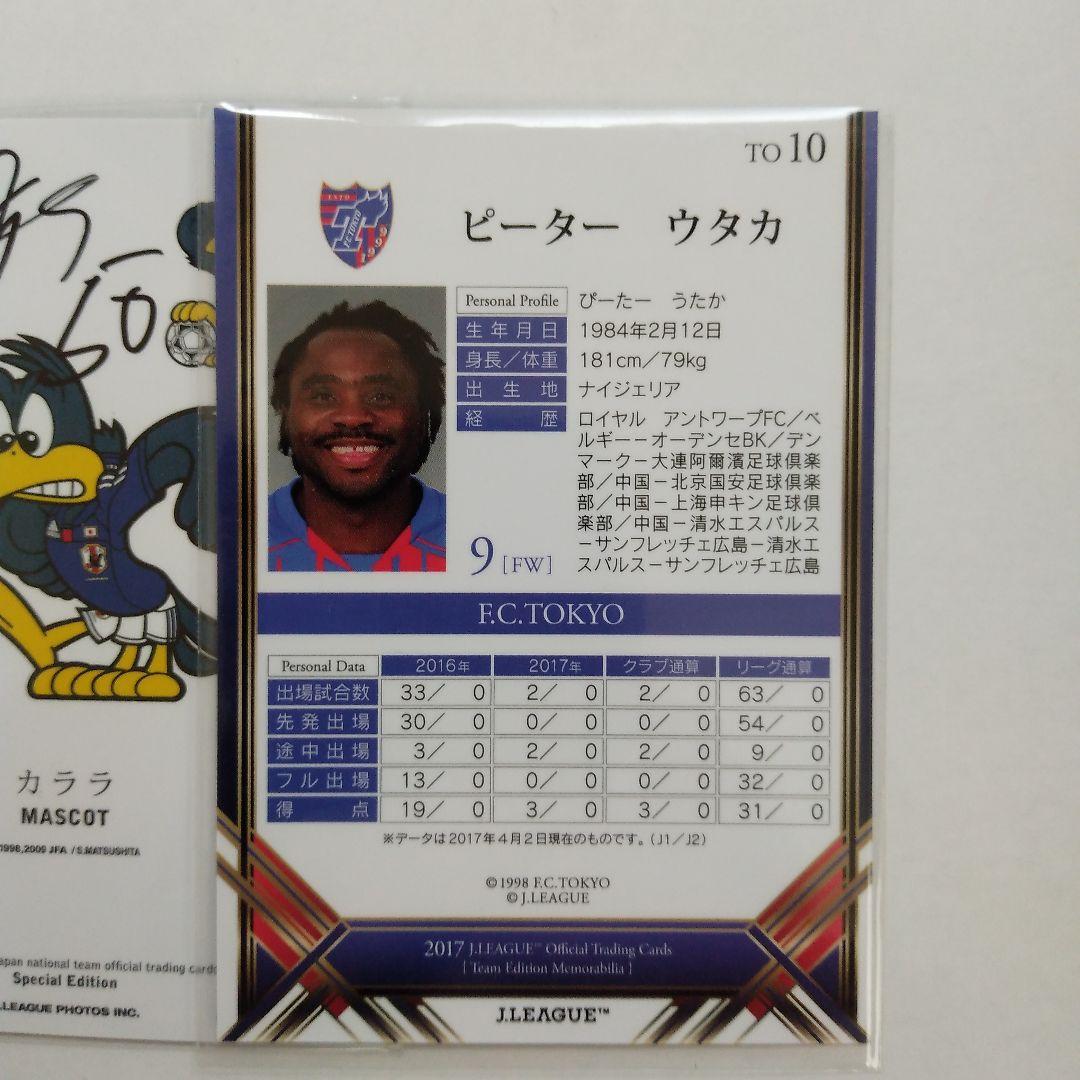 カララ
MASCOT
1998,2009 JFA / S.MATSUSHITA
apan national team official trading cards
Special Edition
J.LEAGUE PHOTOS INC.
TO 10
ピーター ウタカ
F.C.TOKYO
1999
Personal Profile ぴーたー うたか
生年月日 1984年2月12日
身長／体重 181cm／79kg
出生地 ナイジェリア
経歴 ロイヤル アントワープFC／ベ
ルギー－オーデンセBK／デン
マーク－大連阿爾濱足球倶楽
部／中国－北京国安足球倶楽
部／中国－上海申キン足球倶
楽部／中国－清水エスパルス
－サンフレッチェ広島－清水エ
スパルス－サンフレッチェ広島
9 [FW]
F.C.TOKYO
Personal Data 2016年 2017年 クラブ通算 リーグ通算
出場試合数 33／ 0 2／ 0 2／ 0 63／ 0
先発出場 30／ 0 0／ 0 0／ 0 54／ 0
途中出場 3／ 0 2／ 0 2／ 0 9／ 0
フル出場 13／ 0 0／ 0 0／ 0 32／ 0
得点 19／ 0 3／ 0 3／ 0 31／ 0
※データは2017年4月2日現在のものです。（J1／J2）
©1998 F.C.TOKYO
© J.LEAGUE
2017 J.LEAGUE™ Official Trading Cards
[ Team Edition Memorabilia ]
J.LEAGUE™